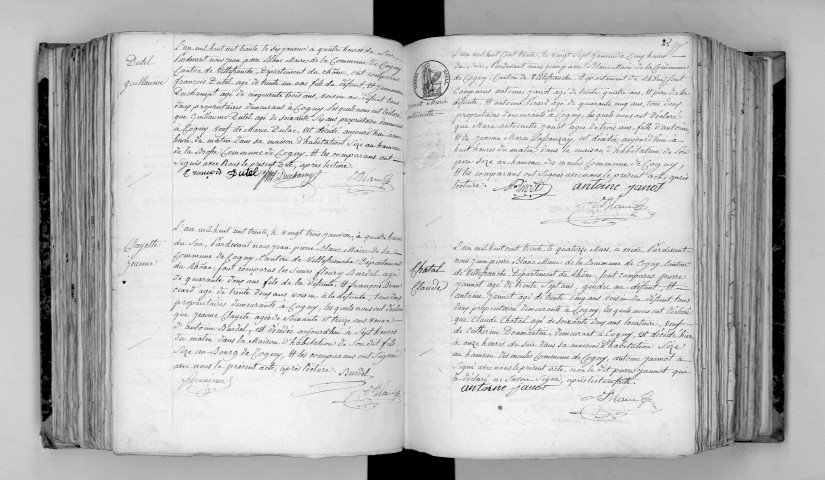 Dutel
guillaume
L'an mil huit cent trente le dix janvier à quatre heures du Soir
Pardevant nous jean pierre Blanc Maire de la Commune de Cogny
Canton de Villefranche, Département du rhône, ont comparus
françois Dutel agé de trente un ans fils du défunt, Et jean
Duchampt agé de cinquante trois ans, voisin au défunt tous
deux propriétaires demeurants à Cogny, les quels nous ont déclaré
que Guillaume Dutel agé de soixante ans propriétaire demeurant
à Cogny veuf de Marie Dulac, est décédé aujourdhui à une
heure du matin dans sa maison d'habitation Size au hameau
de la Commune de Cogny, Et les comparans ont
Signés avec Nous le présent acte, après lecture
françois Dutel Blanc
Clayette
jeanne
L'an mil huit cent trente, le vingt trois janvier, à quatre heures
du Soir, Pardevant nous jean pierre Blanc Maire de la
Commune de Cogny, Canton de Villefranche Département
du Rhône, Sont comparus les Sieurs fleury Burdel agé
de quarante deux ans fils de la défunte, Et françois
agé de trente deux ans voisin à la défunte, tous deux
propriétaires demeurants à Cogny, les quels nous ont déclaré
que jeanne Clayette agée de Soixante et treize ans veuve
d'Antoine Burdel, est décédée aujourdhui à Sept heures
du matin dans la Maison d'habitation de Son dit fils
Size au Bourg de Cogny, Et les comparans ont Signé
avec nous le présent acte, après lecture Burdel
Blanc
janot Marie
antoinette
L'an mil huit Cent trente, le vingt Sept janvier à Cinq heures
du Soir, Pardevant nous jean pierre Blanc Maire de la Commune
de Cogny, Canton de Villefranche, Département du Rhône, Sont
Comparus antoine janot agé de trente quatre ans, Et père de la
défunte, Et antoine Picard agé de quarante cinq ans, tous deux
propriétaires demeurants à Cogny, les quels nous ont déclaré
que Marie antoinette janot agée de trois ans, fille d'antoine
Et de jeanne Marie est décédée aujourdhui à
huit heures du matin dans la maison d'habitation de Son
père Size au hameau des meules Commune de Cogny,
Et les comparans ont Signé avec nous le présent acte, après
lecture. antoine janot
Blanc
Chatal
Claude
L'an mil huit cent trente, le quatorze Mars, à midi, Pardevant
nous jean pierre Blanc Maire de la Commune de Cogny, Canton
de Villefranche Département du Rhône, Sont comparus pierre
jannot agé de trente Sept ans, gendre au défunt Et
antoine jannot agé de trente cinq ans voisin du défunt, tous
deux propriétaires demeurants à Cogny, les quels nous ont déclaré
que Claude Chatal agé de soixante deux ans locataire, veuf
de Catherine demeurant à Cogny, est décédé hier
à onze heures du Soir dans sa maison d'habitation Size
au hameau des meules Commune de Cogny, antoine jannot a
Signé avec nous le présent acte, non le dit pierre jannot qui
a déclaré ne Savoir Signer, après lecture faite.
antoine janot
Blanc